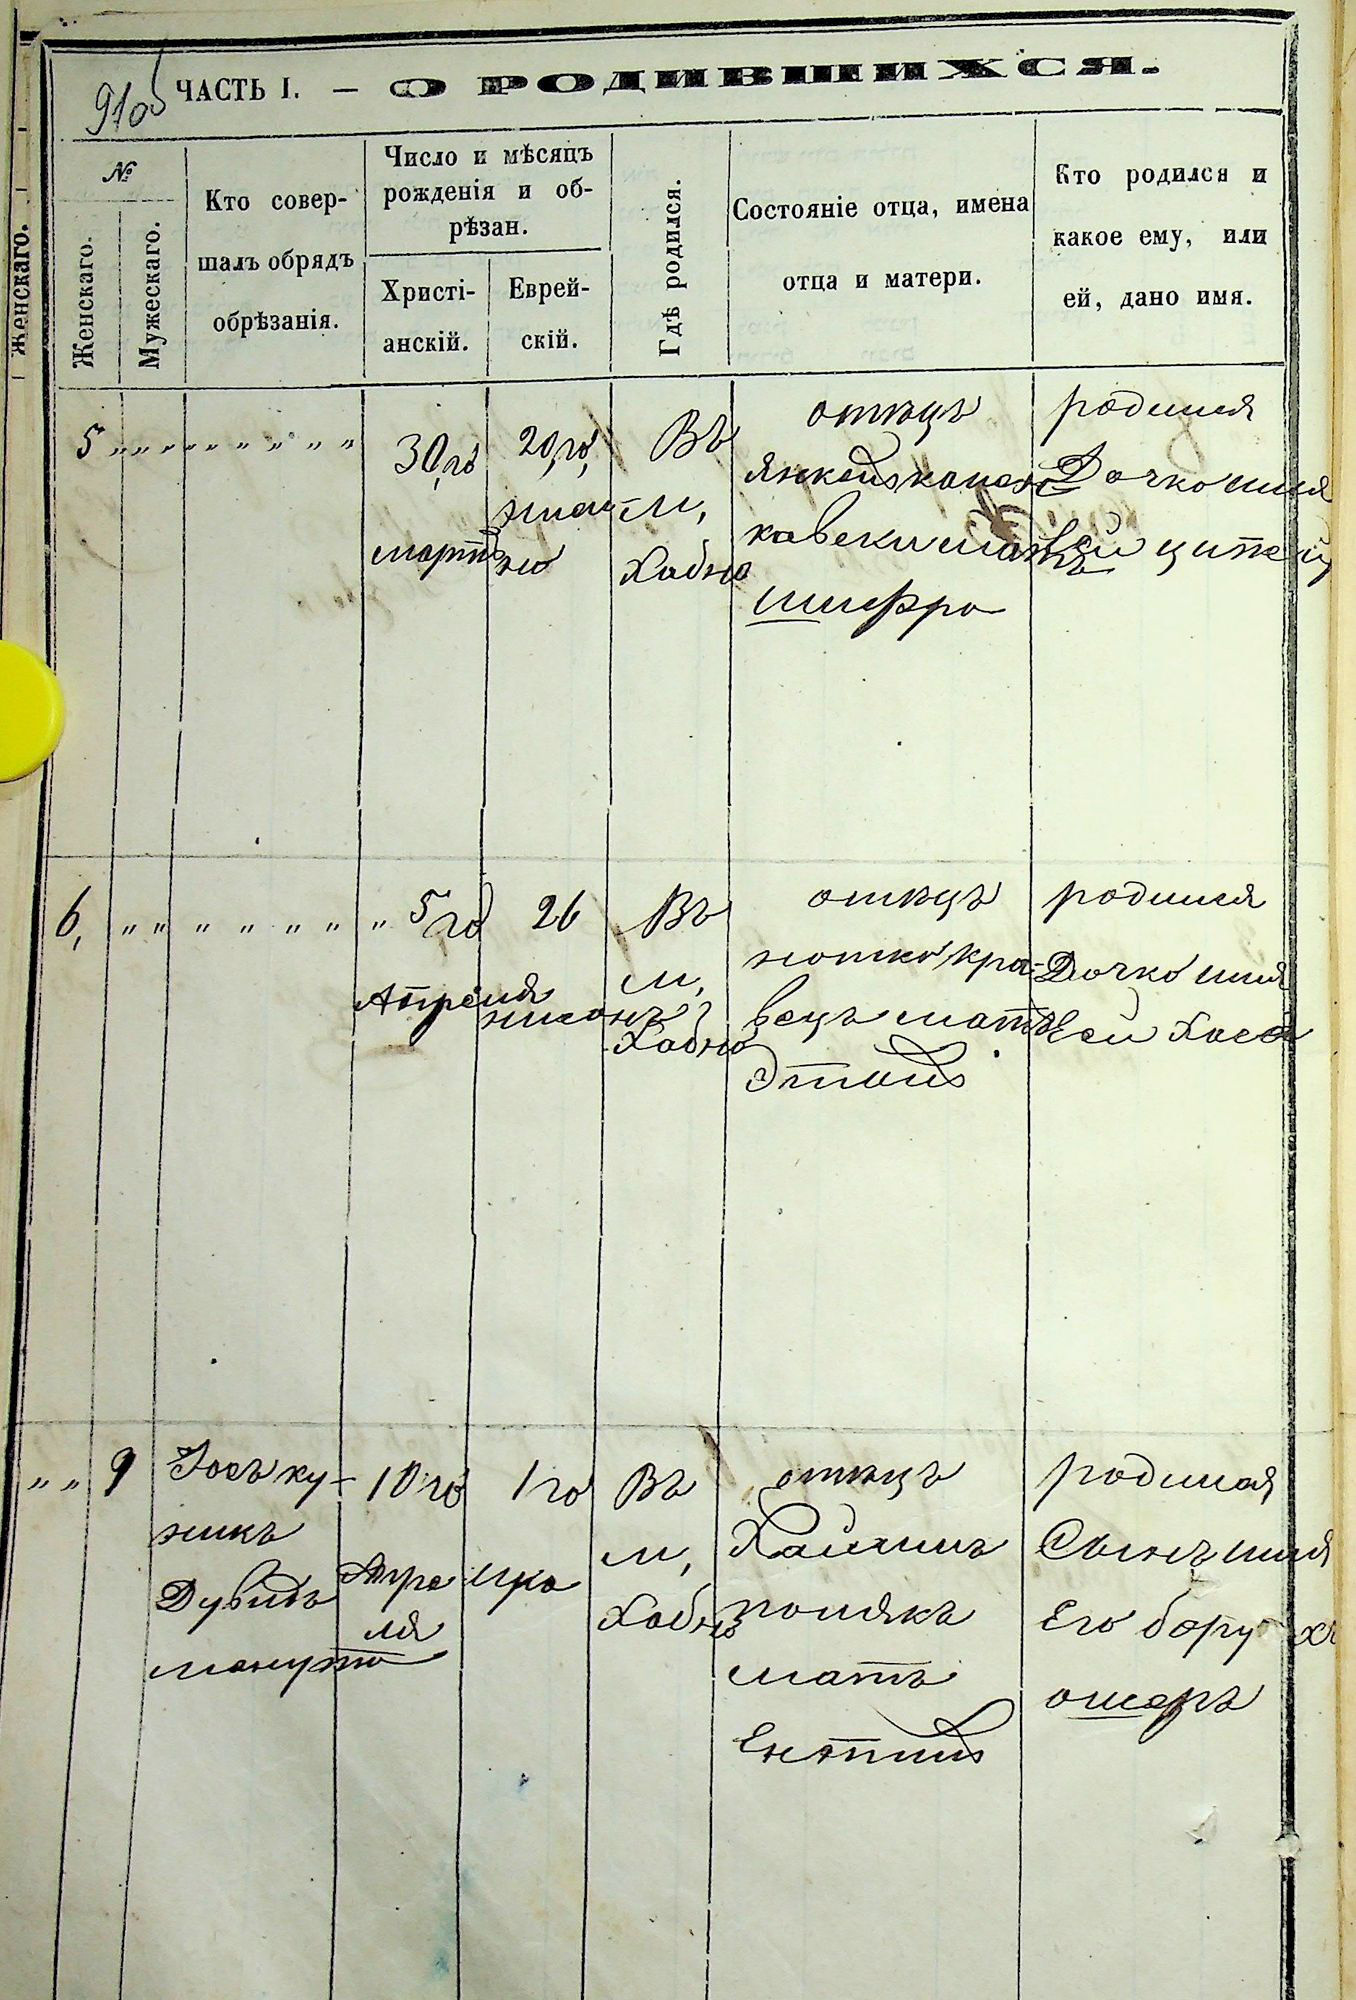 91об
ЧАСТЬ I. — О РОДИВШИХСЯ.
Женскаго.
№
Женскаго.
Мужескаго.
Кто совер-
шалъ обрядъ
обрѣзанія.
Число и мѣсяцъ
рожденія и об-
рѣзан.
Христі-
анскій.
Еврей-
скій.
Гдѣ родился.
Состояніе отца, имена
отца и матери.
Кто родился и
какое ему, или
ей, дано имя.
5 „ „ „ „ „ „ „ „ „
30го
марта
20,го,
Въ
м,
Хабно
отецъ
мать
шифра
родился
Дочко имя
Ей
6, „ „ „ „ „ „ „ „
5го
Апреля
26
нисанъ
Въ
м,
Хабно
отецъ
нотко кра-
вецъ мать
Этля
родился
Дочко имя
Еи Хася
„ „ 9
Іосъ ку-
никъ
Дувидъ
10го
Апре
ля
1го
Іяра
Въ
м,
Хабно
отецъ
Хаимъ
полякъ
мать
Ентля
родился
Сынъ имя
Его борухъ
ошеръ